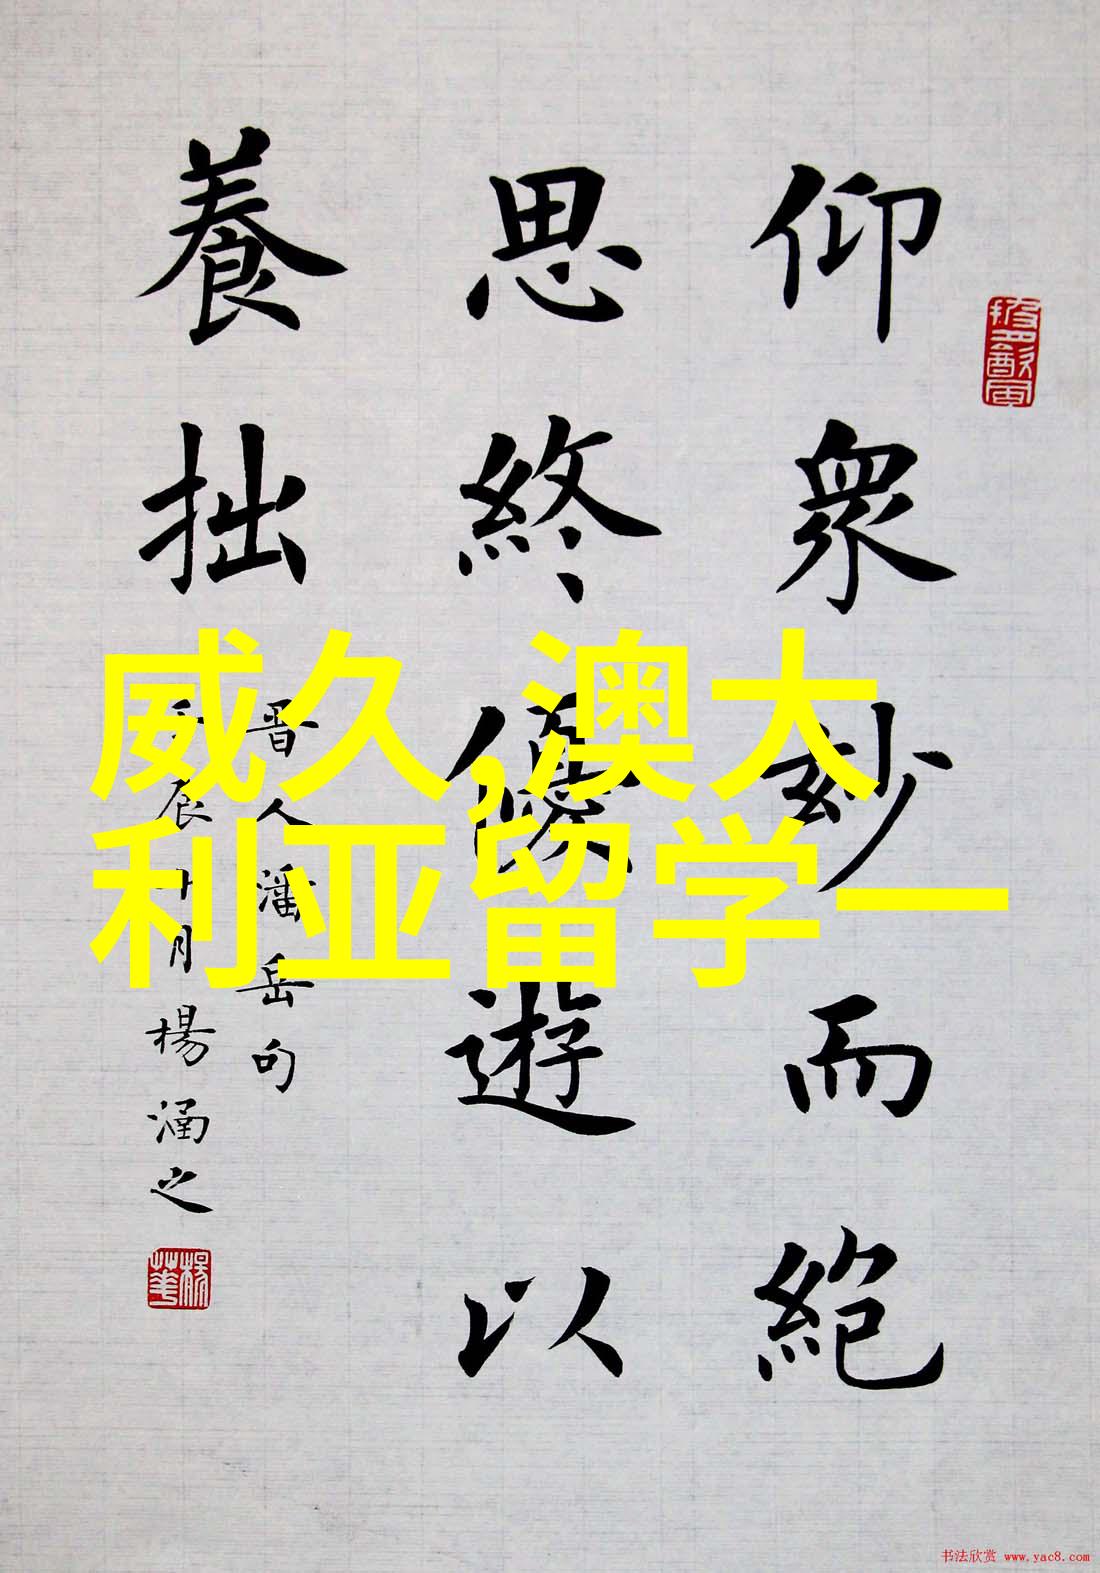 仰眾妙而絕
思終優遊以
養拙
晋人潘岳句
壬辰十月楊涵之
威久,澳大
利亚留学一
书法欣赏 www.yac8.com